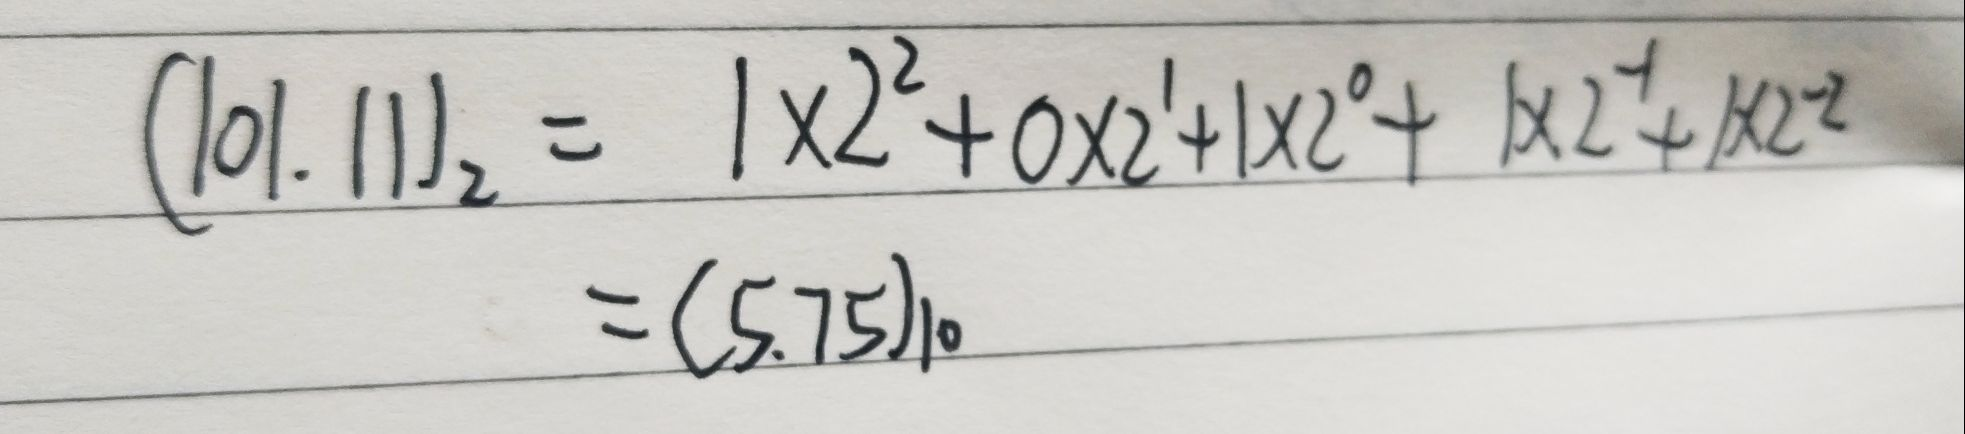 (101.11)₂ = 1×2²+0×2¹+1×2⁰+1×2⁻¹+1×2⁻²
=(5.75)₁₀